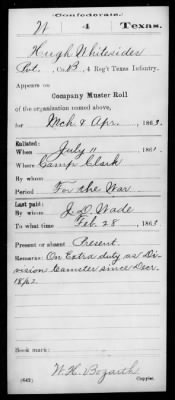 Confederate.
W 4 Texas.
Hugh Whitesides
Pvt., Co. B, 4 Reg't Texas Infantry.
Appears on
Company Muster Roll
of the organization named above,
for Mch & Apr, 1863.
Enlisted:
When July 11 1861
Where Camp Clark
By whom
Period For the War
Last paid:
By whom J. D. Wade
To what time Feb. 28, 1863
Present or absent Present
Remarks: On Extra duty as Di-
vision teamster since Decr.
18/62
Book mark:
W. H. Bozarth
(642) Copyist.